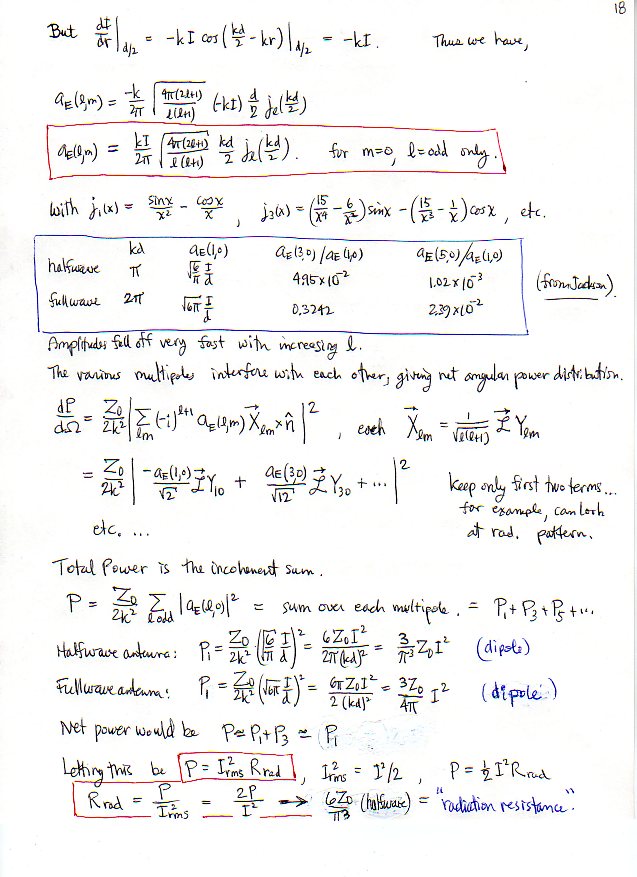 18
But dI/dr|_{d/2} = -kI cos(kd/2 - kr)|_{d/2} = -kI. Thus we have,
a_E(l,m) = -k/2π √(4π(2l+1)/l(l+1)) (-kI) d/2 j_l(kd/2)
a_E(l,m) = kI/2π √(4π(2l+1)/l(l+1)) kd/2 j_l(kd/2). for m=0, l=odd only.
with j_1(x) = sinx/x² - cosx/x , j_3(x) = (15/x⁴ - 6/x²) sinx - (15/x³ - 1/x) cosx , etc.
kd a_E(1,0) a_E(3,0)/a_E(1,0) a_E(5,0)/a_E(1,0)
halfwave π √(6/π) I/d 4.95×10⁻² 1.02×10⁻³ (from Jackson).
fullwave 2π √(6π) I/d 0.3242 2.39×10⁻²
Amplitudes fall off very fast with increasing l.
The various multipoles interfere with each other, giving net angular power distribution.
dP/dΩ = Z₀/2k² |Σ_{lm} (-i)^{l+1} a_E(l,m) X⃗_{lm} × n̂|² , each X⃗_{lm} = 1/√(l(l+1)) L⃗ Y_{lm}
= Z₀/2k² | -a_E(1,0)/√2 L⃗ Y₁₀ + a_E(3,0)/√12 L⃗ Y₃₀ + ... |² keep only first two terms...
for example, can look
etc. ... at rad. pattern.
Total Power is the incoherent sum.
P = Z₀/2k² Σ_{l odd} |a_E(l,0)|² = sum over each multipole. = P₁+P₃+P₅+...
Halfwave antenna: P₁ = Z₀/2k² (√(6/π) I/d)² = 6Z₀I²/2π(kd)² = 3/π³ Z₀I² (dipole)
Fullwave antenna: P₁ = Z₀/2k² (√(6π) I/d)² = 6πZ₀I²/2(kd)² = 3Z₀/4π I² (dipole)
Net power would be P≃P₁+P₃ ≃ P₁
Letting this be P = I²_rms R_rad , I²_rms = I²/2 , P = ½ I² R_rad
R_rad = P/I²_rms = 2P/I² → 6Z₀/π³ (halfwave) = "radiation resistance".